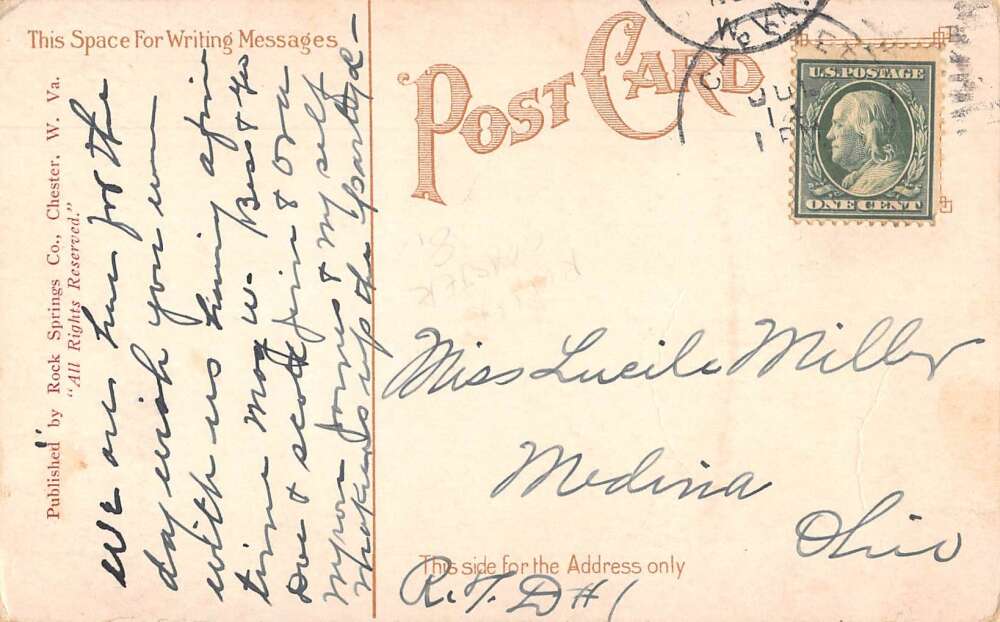 This Space For Writing Messages
Published by Rock Springs Co., Chester, W. Va.
"All Rights Reserved."
We are here for the
day wish you were
with us having a fine
time May W. Bess &
Dove & scott Jim & Ora
Myron James & my self
Makes up the party -
POST CARD
U.S. POSTAGE
ONE CENT
Miss Lucile Miller
Medina
Ohio
This side for the Address only
R.F.D #1